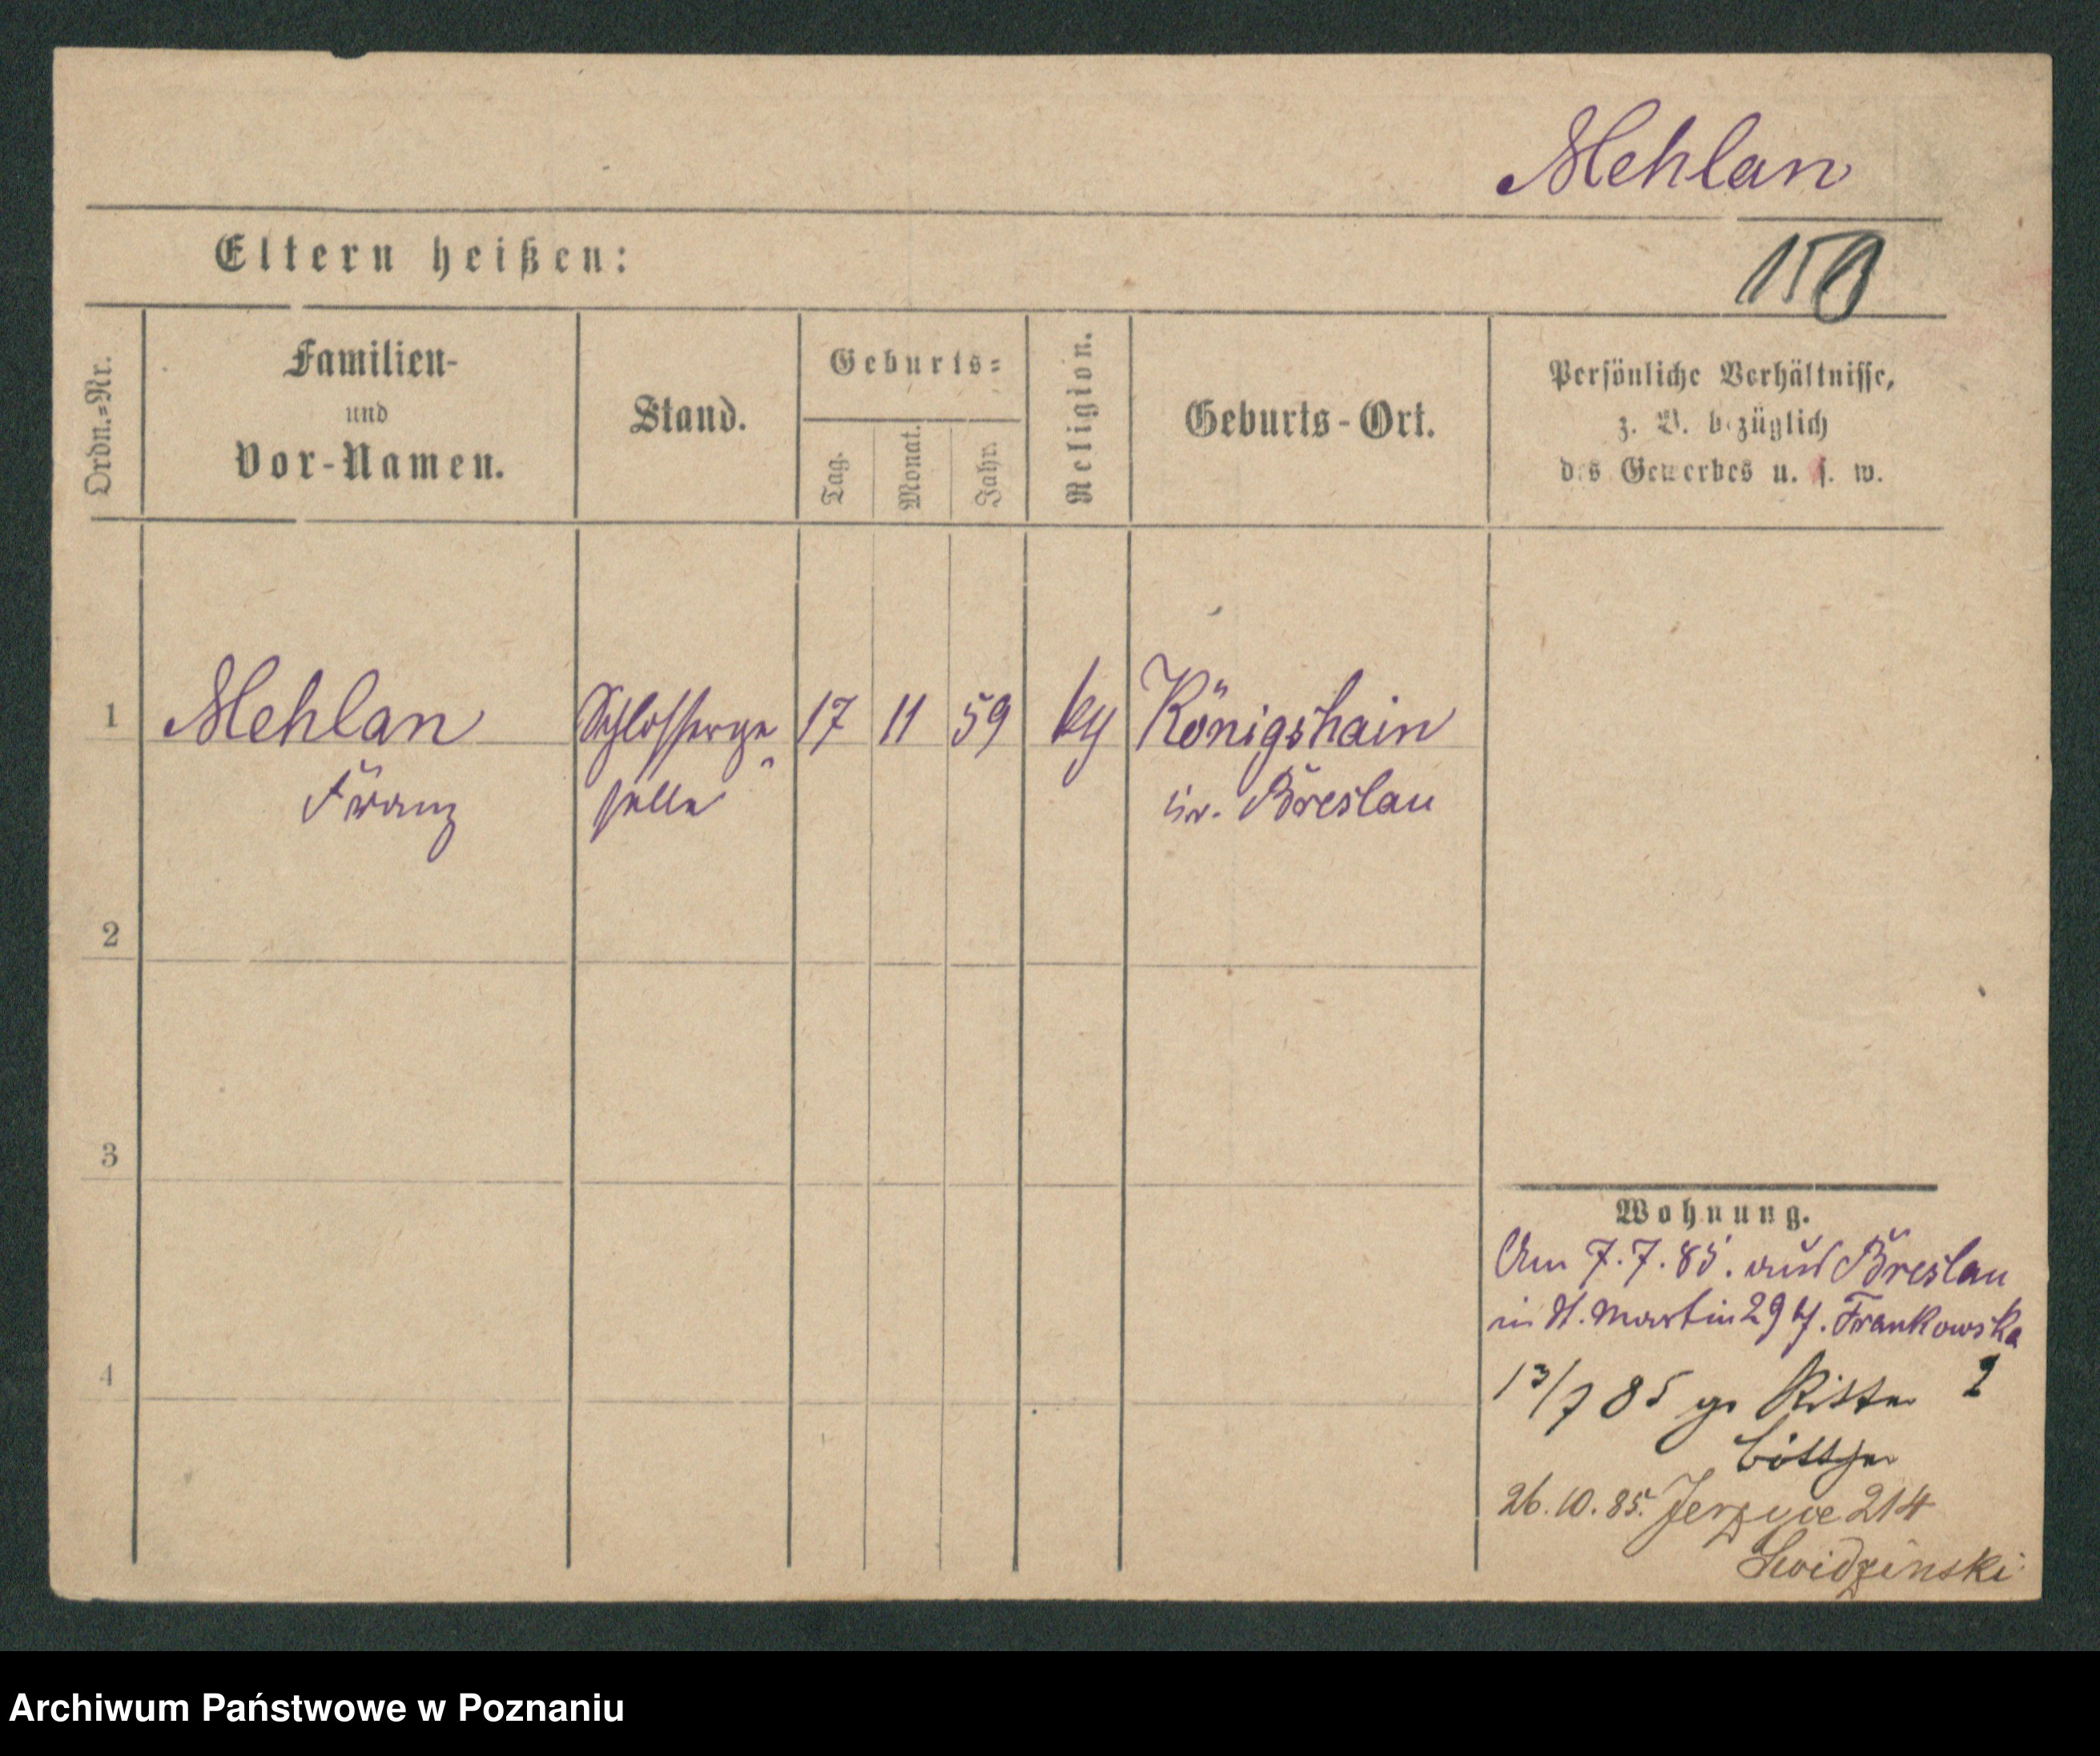 Mehlan
Eltern heißen:
150
Ordn.=Nr.
Familien-
und
Vor-Namen.
Stand.
Geburts=
Tag.
Monat.
Jahr.
Religion.
Geburts-Ort.
Persönliche Verhältnisse,
z. B. bezüglich
des Gewerbes u. s. w.
1 Mehlan Schlosserge 17 11 59 ky Königshain
Franz selle Kr. Breslau
2
3
4
Wohnung.
Am 7.7.85. aus Breslau
in St. Martin 29 b/. Frankowska
13/7 85 gr Ritter 2
Böttger
26.10.85. Jerzyce 214
Swidzinski
Archiwum Państwowe w Poznaniu